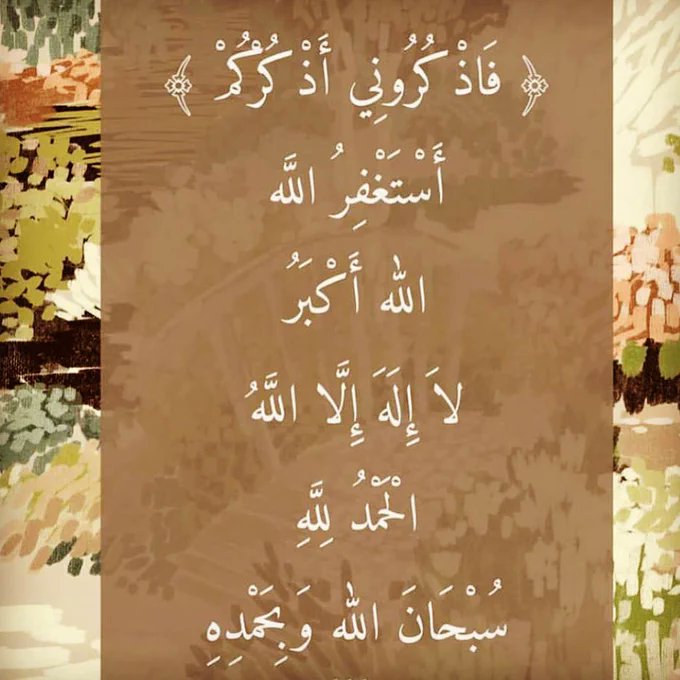 ﴿ فَاذْكُرُونِي أَذْكُرْكُمْ ﴾
أَسْتَغْفِرُ اللَّه
اللَّه أَكْبَرُ
لاَ إِلَهَ إِلَّا اللَّهُ
الْحَمْدُ لِلَّهِ
سُبْحَانَ اللَّه وَبِحَمْدِهِ